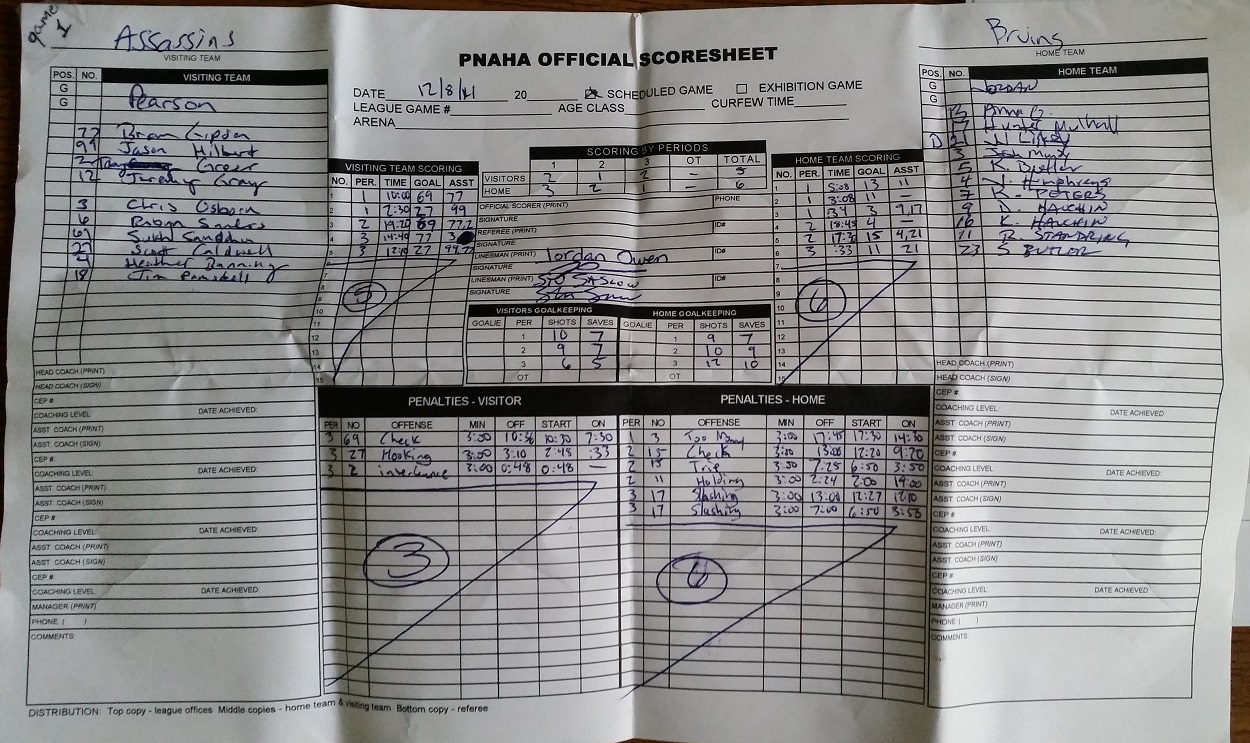 game 1
Assassins
VISITING TEAM
Bruins
HOME TEAM
PNAHA OFFICIAL SCORESHEET
DATE 12/8/ 20 SCHEDULED GAME EXHIBITION GAME
LEAGUE GAME # AGE CLASS CURFEW TIME
ARENA
POS. NO. VISITING TEAM
G Pearson
G
77 Brian Gipson
99 Jason Hilbert
2 Greer
12 Jeremy Gray
3 Chris Osborn
6 Robyn
69
27 Scott Caldwell
9 Heather
18 Tim
HEAD COACH (PRINT)
HEAD COACH (SIGN)
CEP #
COACHING LEVEL DATE ACHIEVED:
ASST. COACH (PRINT)
ASST. COACH (SIGN)
CEP #
COACHING LEVEL DATE ACHIEVED:
ASST. COACH (PRINT)
ASST. COACH (SIGN)
CEP #
COACHING LEVEL DATE ACHIEVED:
ASST. COACH (PRINT)
ASST. COACH (SIGN)
CEP #
COACHING LEVEL DATE ACHIEVED:
MANAGER (PRINT)
PHONE: ( )
COMMENTS:
VISITING TEAM SCORING
NO. PER. TIME GOAL ASST
1 1 10:00 69 77
2 1 2:30 27 99
3 2 19:20 69 77,2
4 3 14:40 77 3
5 3 12:10 27 99,77
6
7
8
9
10
11
12
13
14
15
5
SCORING BY PERIODS
1 2 3 OT TOTAL
VISITORS 2 1 2 — 5
HOME 3 2 1 — 6
OFFICIAL SCORER (PRINT) PHONE
SIGNATURE
REFEREE (PRINT) ID#
SIGNATURE
LINESMAN (PRINT) Jordan Owen
SIGNATURE
LINESMAN (PRINT) STU SASLOW ID#
SIGNATURE
VISITORS GOALKEEPING
GOALIE PER SHOTS SAVES
1 10 7
2 9 7
3 6 5
OT
HOME GOALKEEPING
GOALIE PER SHOTS SAVES
1 9 7
2 10 9
3 12 10
OT
HOME TEAM SCORING
NO. PER. TIME GOAL ASST
1 1 5:08 13 11
2 1 3:08 11
3 1 :34 3 9,17
4 2 18:45 4 —
5 2 17:30 15 4,21
6 3 :33 11 21
7
8
9
10
11
12
13
14
15
6
POS. NO. HOME TEAM
G JORDAN
G
Mulhall
D 21
3
5 K.
4 J. Humphreys
7 R. PETERS
9 D. HAUCHIN
16 K. HAUCHIN
11 R. STANDRING
23 S BUTLER
HEAD COACH (PRINT)
HEAD COACH (SIGN)
CEP #
COACHING LEVEL DATE ACHIEVED:
ASST. COACH (PRINT)
ASST. COACH (SIGN)
CEP #
COACHING LEVEL DATE ACHIEVED:
ASST. COACH (PRINT)
ASST. COACH (SIGN)
CEP #
COACHING LEVEL DATE ACHIEVED:
ASST. COACH (PRINT)
ASST. COACH (SIGN)
CEP #
COACHING LEVEL DATE ACHIEVED:
MANAGER (PRINT)
PHONE ( )
COMMENTS:
PENALTIES - VISITOR
PER NO OFFENSE MIN OFF START ON
3 69 Check 3:00 10:36 10:30 7:30
3 27 Hooking 3:00 3:10 2:45 :33
3 2 interference 3:00 0:48 0:48 —
3
PENALTIES - HOME
PER NO OFFENSE MIN OFF START ON
1 3 Too Many 3:00 17:45 17:30 14:30
2 15 Check 3:00 13:00 12:20 9:20
2 15 Trip 3:00 7:25 6:50 3:50
2 11 Holding 3:00 2:24 2:00 19:00
3 17 Slashing 3:00 13:00 12:27 12:10
3 17 Slashing 3:00 7:00 6:50 3:50
6
DISTRIBUTION: Top copy - league offices Middle copies - home team & visiting team Bottom copy - referee